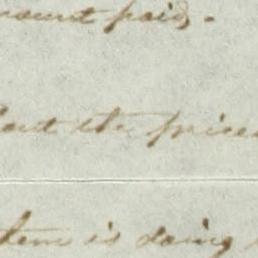 amount paid.
but the prices
tem is doing